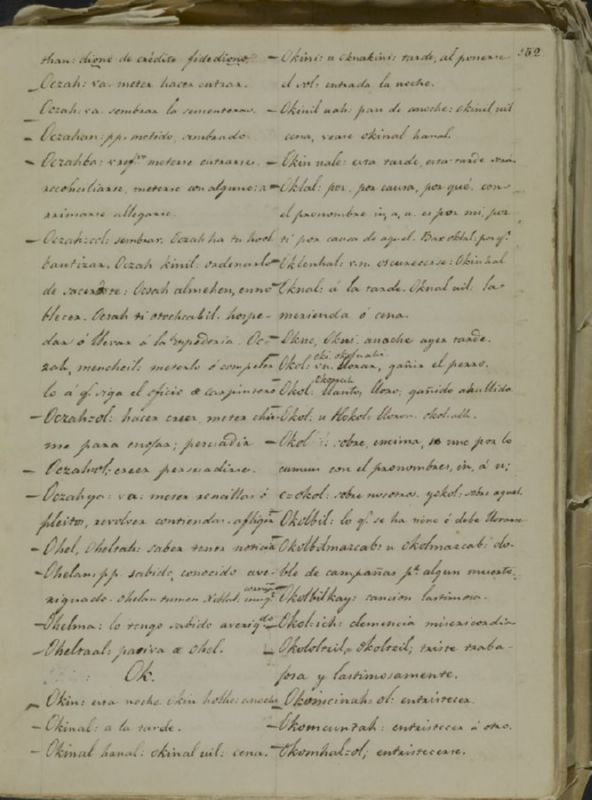 352
than: dióne de crédito fidedigno.
Oczah: va. meter hacer entrar.
Oczah: va. sembrar la sementera.
Oczahan: pp. metido, sembrado.
Oczahba: meterse entrarse.
reconciliarse, meterse con alguno: a-
rrimarse allegarse.
Oczah: sembrar. Oczah ha tu hool
bautizar. Oczah kinil: ordenarlo
de sacerdote: Oczah almehen, enno
blecer. Oczah ti otochcabil: hospe-
dar ó llevar á la Oc-
zah, mencheil: meterlo ó competer
lo á qe. siga el oficio de carpintero
Oczahzol: hacer creer, meter
me para persuadir
Oczahol: creer persuadirse.
Oczahya: va: meter rencillas ó
pleitos, revolver contiendas
Ohel, Oheltah: saber tener noticia
Ohelan: pp. sabido, conocido ave-
riguado. ohelan tumen
Ohelma: lo tengo sabido
Oheltaal: pasiva de ohel.
Ok.
Okin: esta noche. Okin holhe: anoche
Okinal: a la tarde.
Okinal hanal: okinal uil: cena.
Okini: u oknakini: tarde, al ponerse
el sol: entrada la noche.
Okinil uah: pan de anoche: okinil uil
cena, vease okinal hanal.
Okin nale: esta tarde, esta tarde
Oklal: por, por causa, por qué. con
el pronombre in, a, u. es por mi, por
ti por causa de aquel. Bax oklal: por qe.
vn. oscurecerse: Okinhal
Oknal: á la tarde. Oknal uil: la
merienda ó cena.
Okne, Okni: anoche ayer tarde.
Okol: vn. llorar, gañir el perro.
Okol: llanto, lloro; gañido ahullido
Okol: u Hokol: llorar.
Okol sobre, encima, se une por lo
comun con el pronombres, in, á u;
c=okol: sobre nosotros. yokol: sobre aquel.
Okolbil: lo qe. se ha viene ó debe llorarse
Okolbilmazcab: u okolmazcab: do-
ble de campañas pr. algun muerto.
Okolbilkay: cancion lastimosa.
Okol=ich: clemencia misericordia
Okololcil, okolcil; triste traba-
josa y lastimosamente.
ol: entristecer
Okomcuntah: entristecer á otro.
Okomhal=ol; entristecerse.